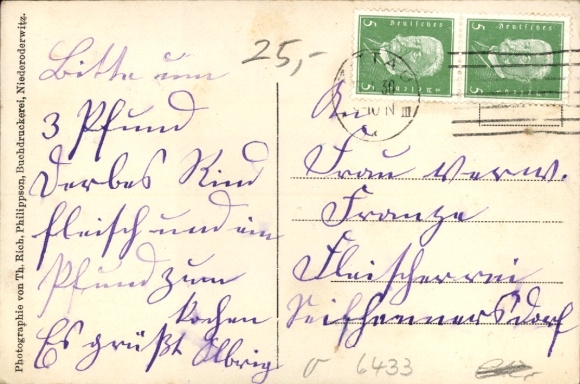 Photographie von Th. Rich. Philippson, Buchdruckerei, Niederoderwitz.
Bitte um
3 Pfund
derbes Rind
fleisch und ein
Pfund zum
kochen
Es grüßt Olbrig
25,-
Deutsches Reich
5
5
Deutsches Reich
5
5
30
An
Frau verw.
Franze
Fleischerei
Seifhennersdorf
6433